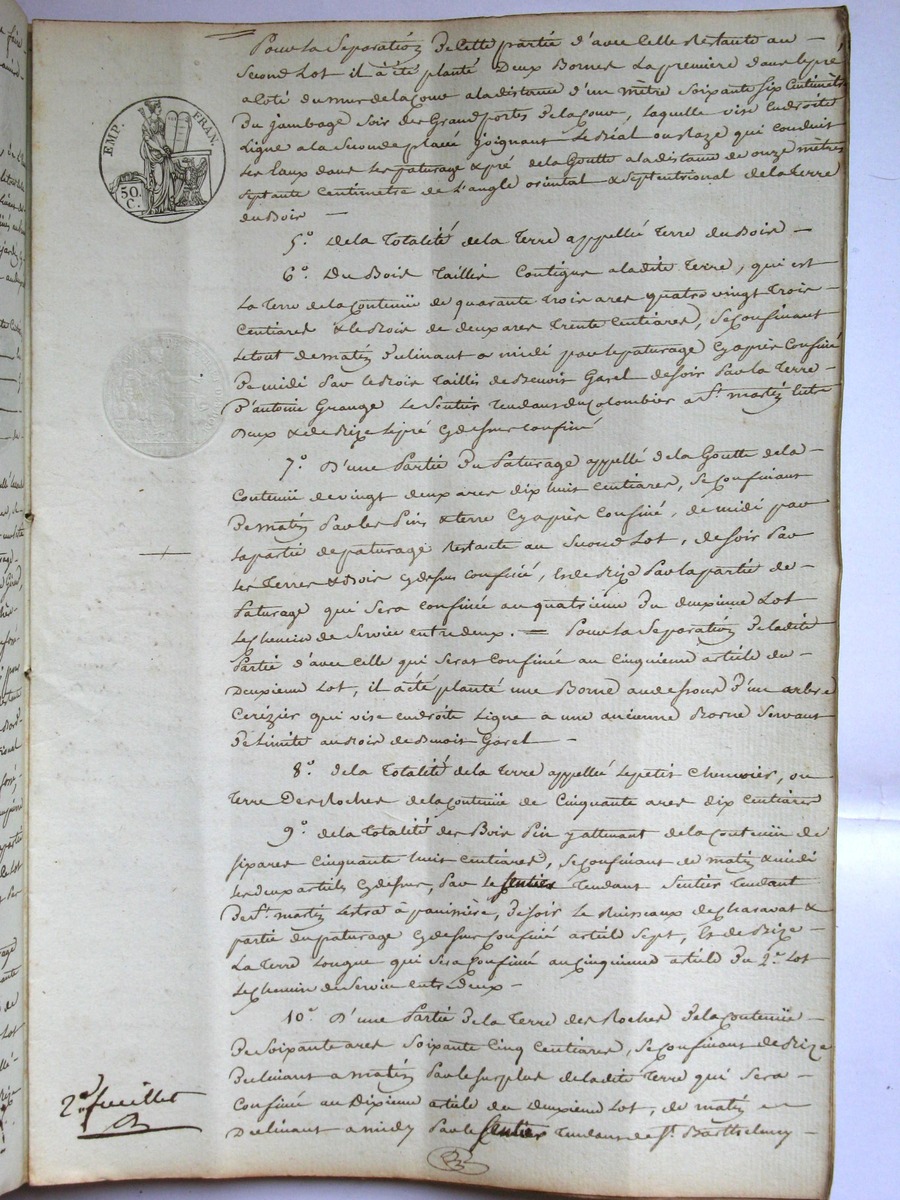 EMP. FRAN.
50 C.
Pour la Séparation de cette partie d'avec celle Restante au –
Second Lot il a été planté Deux Bornes La première dans le pré
a Coté du mur de la Cour a la distance d'un mètre Soixante Six Centimètres
Du jambage Soir des Grand portes de la Cour, laquelle vise en droite
Ligne a la Seconde placée joignant Le Béal ou Raze qui conduit
Les Eaux dans les paturage & pré de la Goutte a la distance de onze mètres
Septante Centimetre de L'angle oriental & Septentrional de la Terre
du Bois –
5.° de la Totalité de la Terre appellée Terre du Bois –
6.° Du Bois Taillis Contigue a ladite Terre, qui est
La Terre de la Contenüe de quarante Trois ares quatre vingt Trois –
Centiares & le Bois de deux ares Trente Centiares, Se Confinant
Le tout de matin Declinant a midi par le paturage Cy après Confiné
De midi Par le Bois Taillis de Benoit Garel de soir Par la Terre –
D'antoine Grange Le Sentier Tendant du Colombier a St. martin Entre
Deux & de Bize le pré Cy dessus Confiné
7.° D'une Partie du Paturage appellé de la Goutte de la –
Contenüe de vingt deux ares dix huit Centiares, Se Confinant
De matin Par les Pins & terre Cy après Confiné, de midi par
la partie de paturage Restante au Second Lot, de soir Par
Les Terres & Bois Cy dessus Confiné, Et de Bize Par la partie de –
Paturage qui Sera Confinée au quatrieme du deuxieme Lot
Le Chemin de Service entre deux. = Pour la Séparation de ladite
Partie d'avec Celle qui Serat Confinée au Cinquieme article du –
Deuxieme Lot, il a été planté une Borne au dessous d'un arbre
Cerézier qui vise en droite Ligne a une ancienne Borne Servant
De Limite au Bois de Benoit Garel –
8.° de la Totalité de la Terre appellée Le petit Chenevier, ou
Terre Des Roches de la Contenüe de Cinquante ares dix Centiares
9.° de la Totalité des Bois Pin y attenant de la Contenüe de
Six ares Cinquante huit Centiares, Se Confinant de matin & midi
Les deux articles Cy dessus, Par le Sentier Tendant Sentier Tendant
De St. martin Lestra à panissière, De soir Le Ruisseaux de Charavat &
partie du paturage Cy dessus Confiné article Sept, Et de Bize –
La Terre Longue qui Sera Confiné au Cinquieme article du 2.e Lot
Le Chemin de Service entre Deux –
10.° D'une Partie de la Terre des Roches de la Contenüe –
De Soixante ares Soixante Cinq Centiares, Se Confinant de Bize
Declinant a matin Par le Surplus de ladite Terre qui Sera –
Confiné au Dixieme article du deuxieme Lot, de matin –
Declinant a midy Par le Sentier Tendant de St. Barthelemy –
2.e feuillet